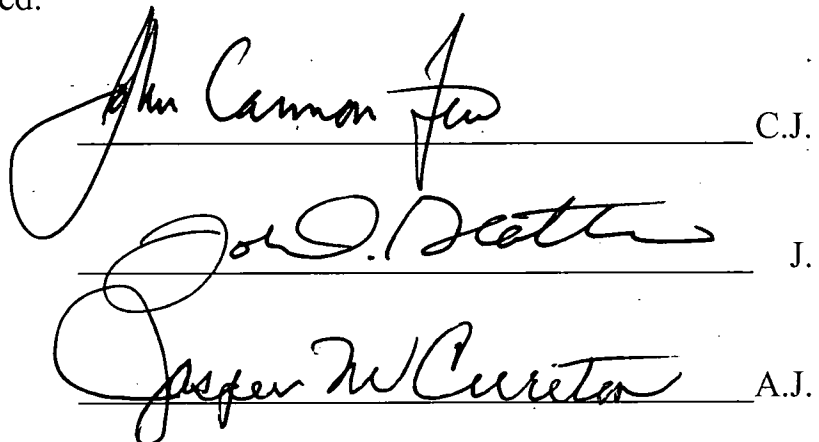 ced.
John Cannon Few C.J.
John D. J.
Jasper M Cureton A.J.